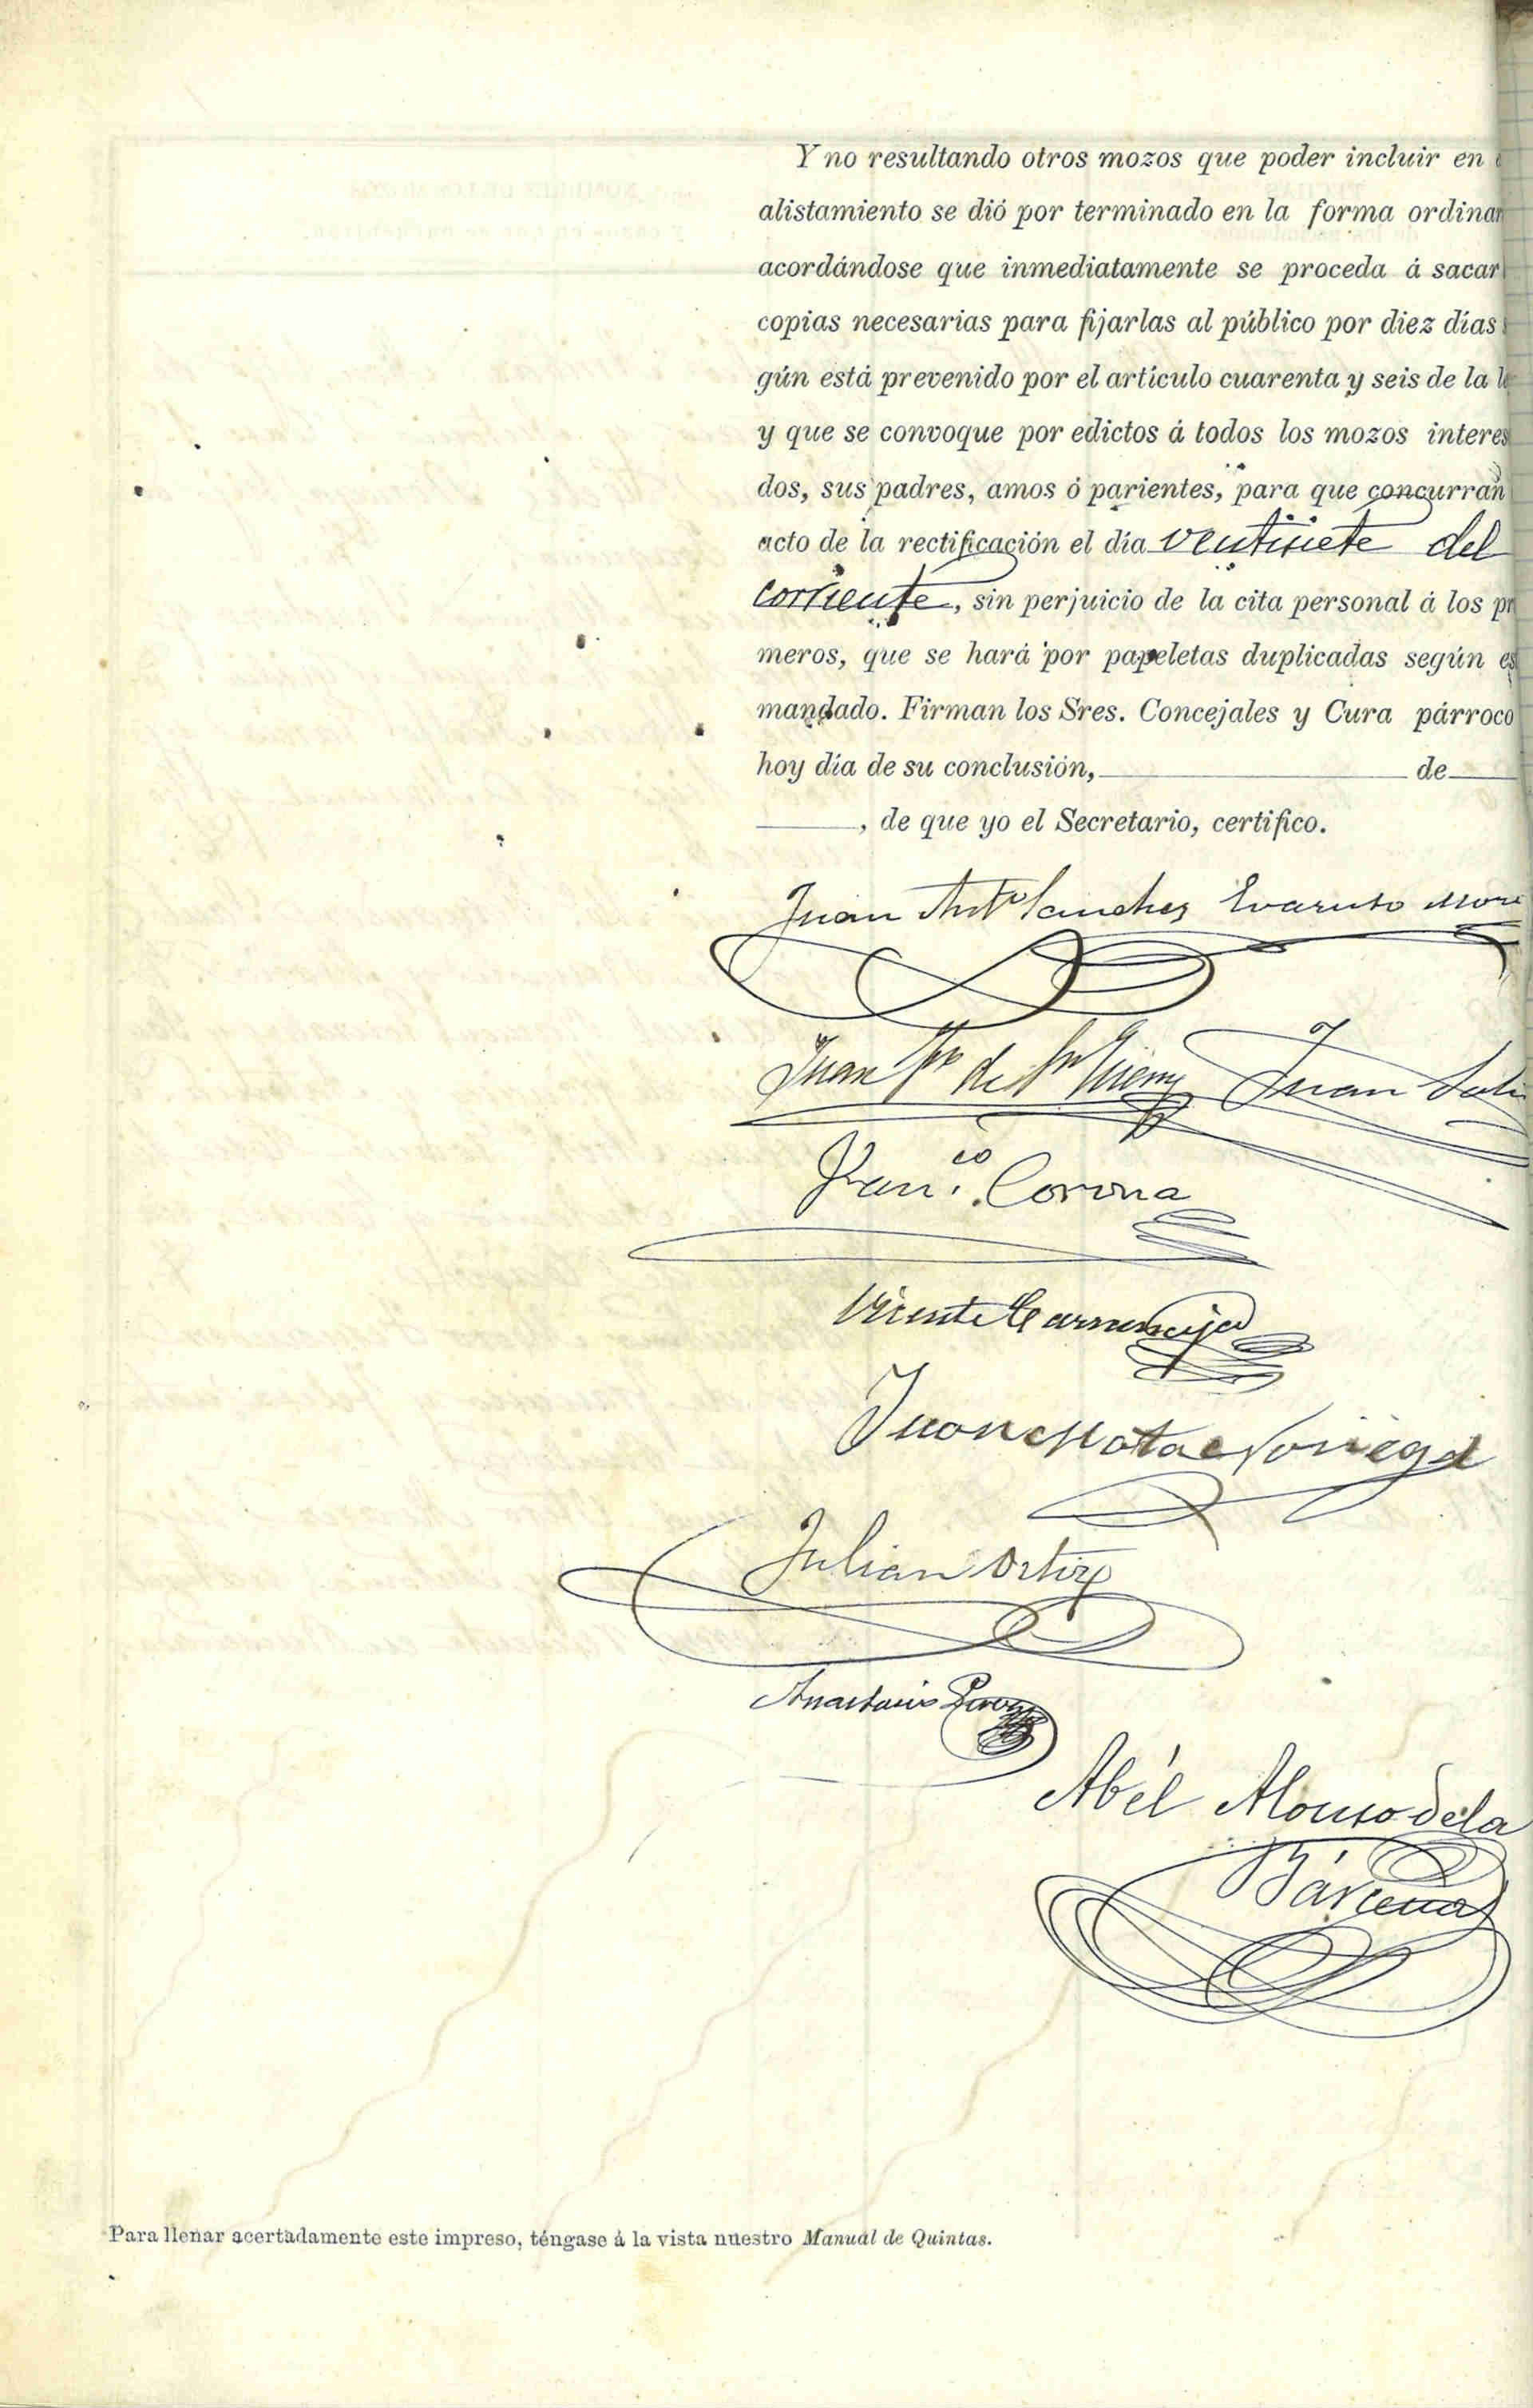 Y no resultando otros mozos que poder incluir en
alistamiento se dió por terminado en la forma ordinar
acordándose que inmediatamente se proceda á sacar
copias necesarias para fijarlas al público por diez días
gún está prevenido por el artículo cuarenta y seis de la
y que se convoque por edictos á todos los mozos interes
dos, sus padres, amos ó parientes, para que concurran
acto de la rectificación el día ventisiete del
corriente, sin perjuicio de la cita personal á los pr
meros, que se hará por papeletas duplicadas según es
mandado. Firman los Sres. Concejales y Cura párroco
hoy día de su conclusión, de
, de que yo el Secretario, certifico.
Juan Antº Sanches Evaristo Mor
Juan de Juan
Franco. Corona
Vicente
Juan Mata Noriega
Julian Ortiz
Anastasio
Abél Alonso de la
Bárcena
Para llenar acertadamente este impreso, téngase á la vista nuestro Manual de Quintas.